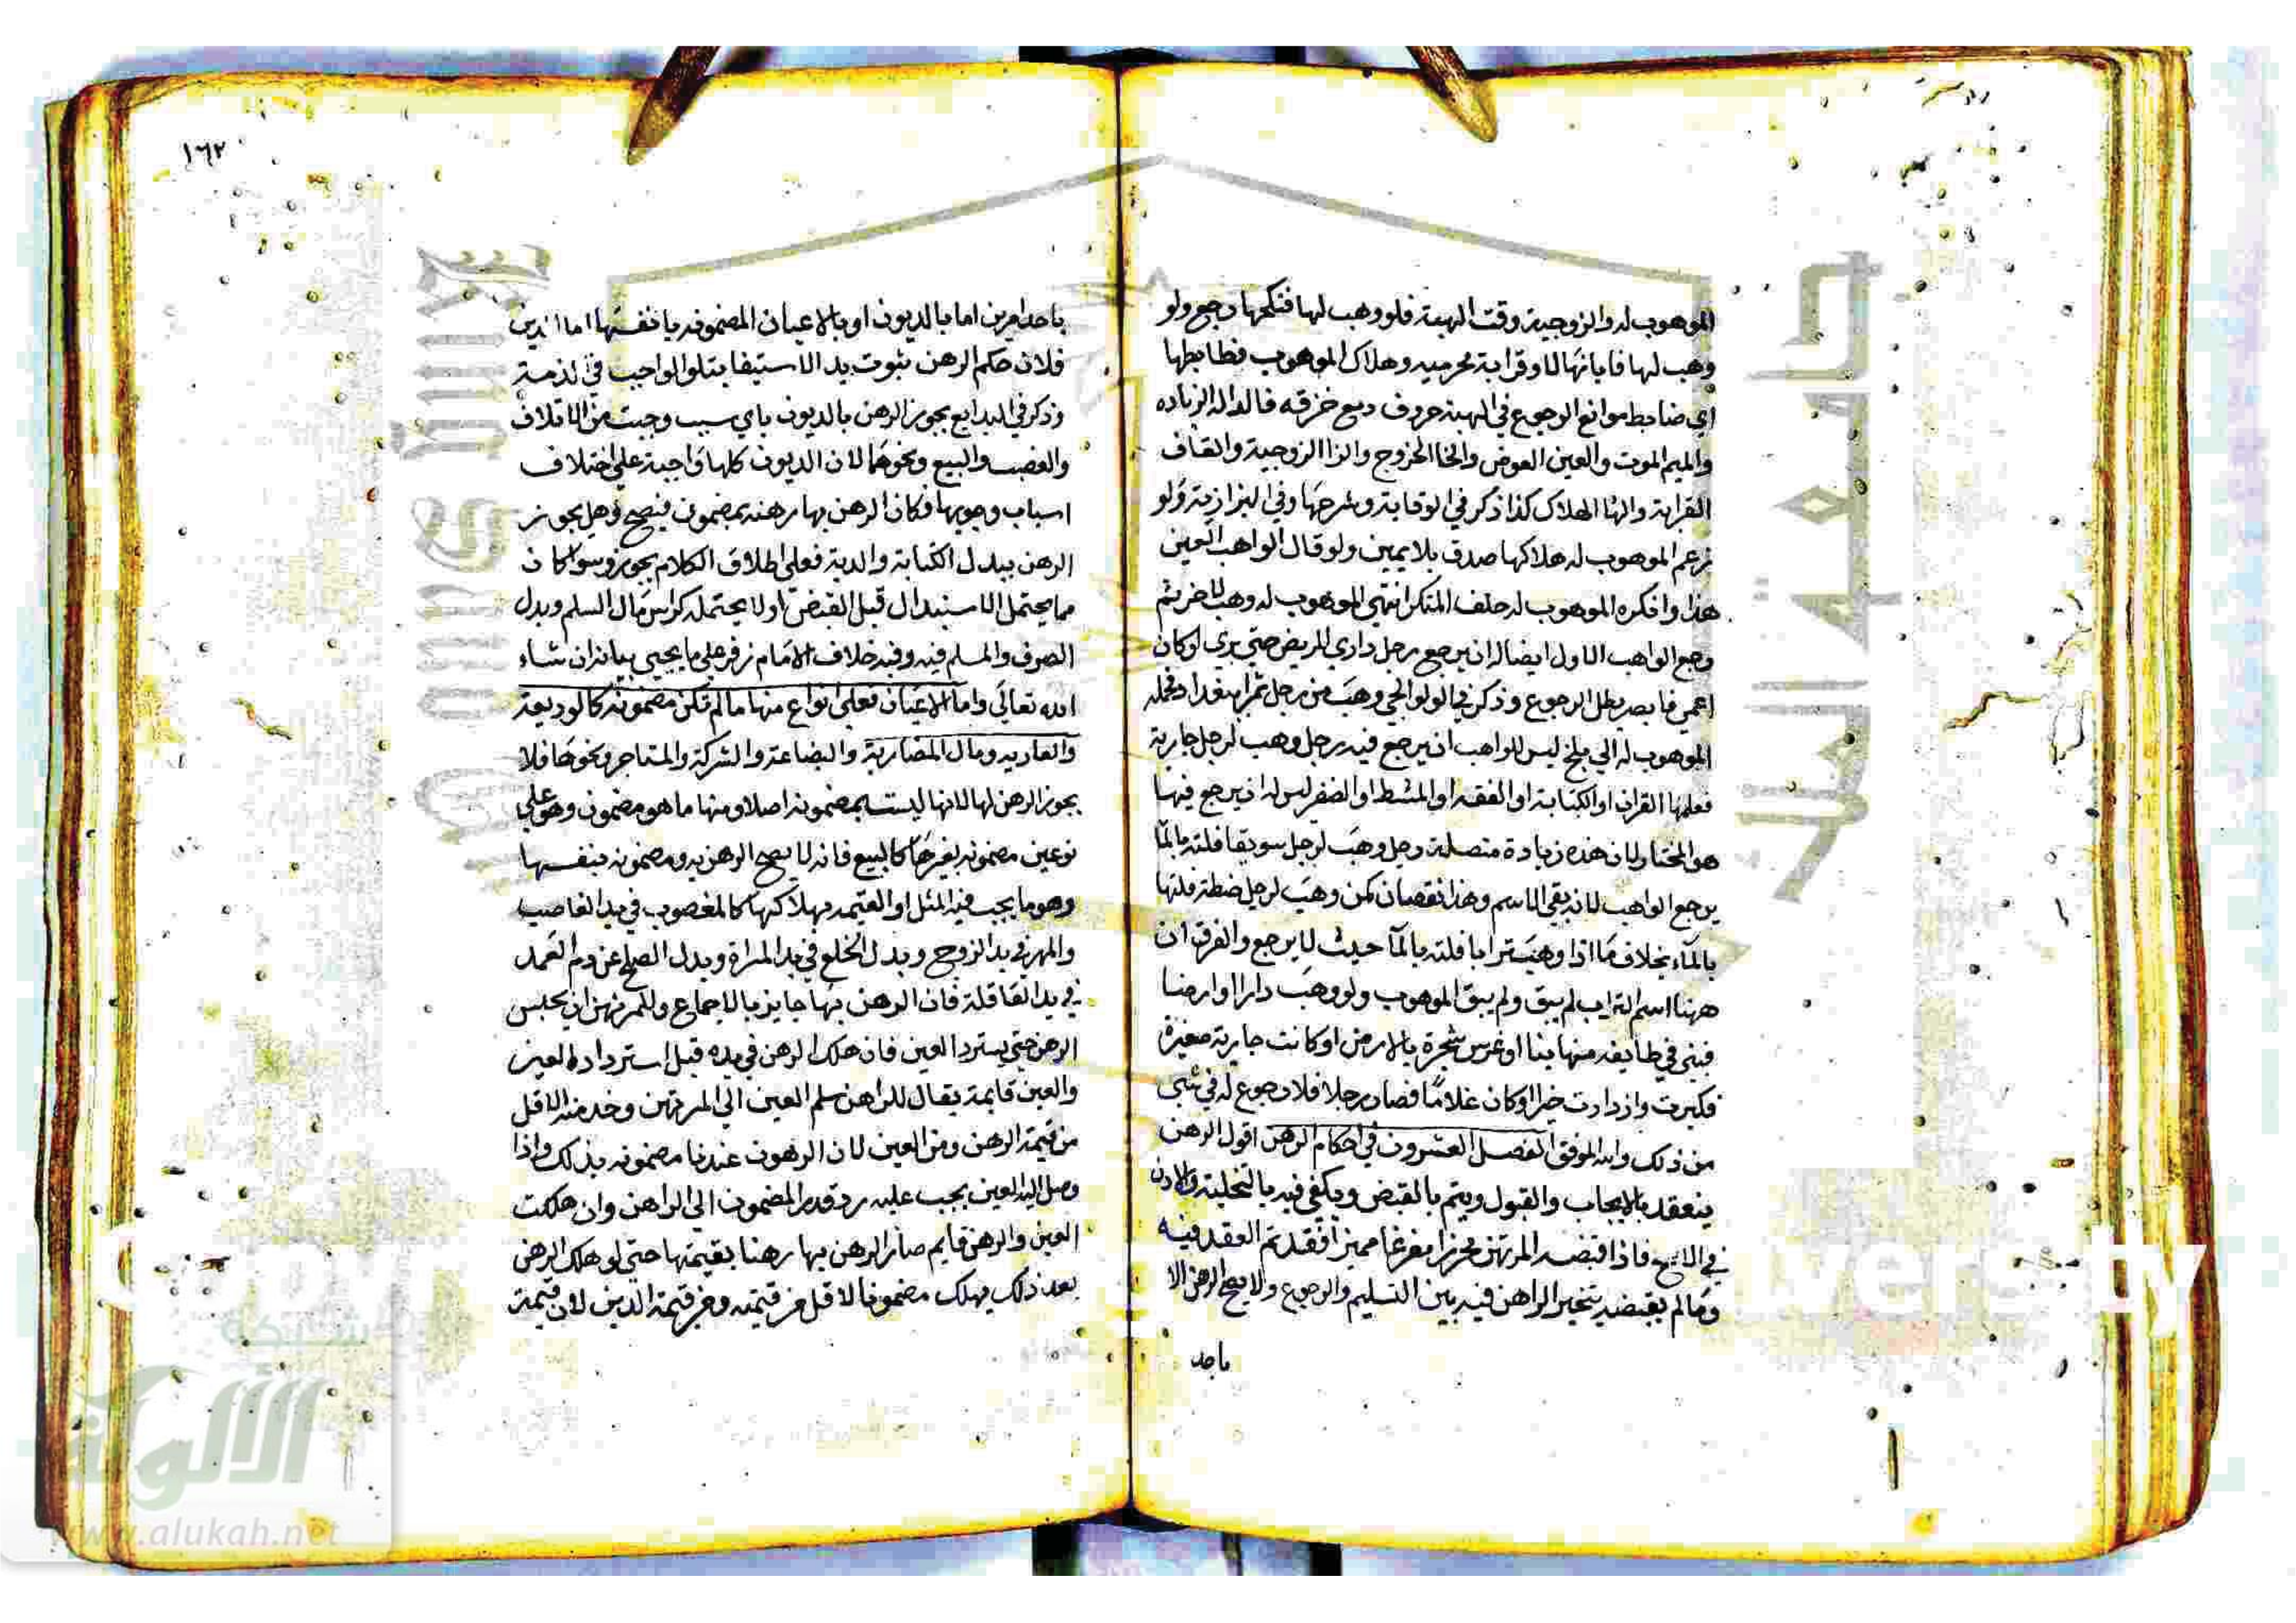 الموهوب له والزوجية وقت الهبة فلو وهب لها فنكحها رجع ولو
وهب لها فابانها لا وقرابة محرميه وهلاك الموهوب فظابطها
اي ضابط موانع الرجوع في الهبة حروف دمع خزقه فالدال الزياده
والميم الموت والعين العوض والخا الخروج والزا الزوجية والقاف
القرابة والها الهلاك كذا ذكر في الوقاية وشرحها وفي البزازية ولو
زعم الموهوب له هلاكها صدق بلا يمين ولو قال الواهب العين
هذا وانكره الموهوب له حلف المنكر انتهي الموهوب له وهب لاخر ثم
رجع الواهب الاول ايضا له ان يرجع رجل داري المريض حتي بري لو كان
اعمي فابصر بطل الرجوع وذكر في الولوالجي وهب من رجل ثمرا ببغداد فحمله
الموهوب له الي بلخ ليس للواهب ان يرجع فيه رجل وهب لرجل جارية
فعلمها القران او الكتابة او الفقه او المشط او الضفر ليس له ان يرجع فيها
هو المختار لان هذه زيادة متصلة رجل وهب لرجل سويقا فلته بالما
يرجع الواهب لانه بقي الاسم وهذا نقصان كمن وهب لرجل حنطة فلتها
بالماء بخلاف ما اذا وهب ترابا فلته بالما حيث لا يرجع والفرق ان
ههنا اسم التراب لم يبق ولم يبق الموهوب ولو وهب دارا او ارضا
فبني في طايفه منها بنا او غرس شجرة بالارض او كانت جارية صغيرة
فكبرت وازدادت خيرا او كان غلاما فصار رجلا فلا رجوع له في شي
من ذلك والله الموفق الفصل العشرون في احكام الرهن اقول الرهن
ينعقد بالايجاب والقبول ويتم بالقبض ويكفي فيه بالتخلية والاذن
في الاصح فاذا اقبضه المرتهن محرزا مفرغا مميزا فقد تم العقد فيه
وما لم يقبضه يتخير الراهن فيه بين التسليم والرجوع ولا يصح الرهن الا
باحد
١٦٢
باحد امرين اما بالديون او بالاعيان المضمونه بانفسها اما الدين
فلان حكم الرهن ثبوت يد الاستيفا يتلو الواجب في الذمة
وذكر في البدايع يجوز الرهن بالديون باي سبب وجبت من الاتلاف
والغصب والبيع ونحوها لان الديون كلها واجبة علي اختلاف
اسباب وجوبها فكان الرهن بها رهنه بمضمون فيصح وهل يجوز
الرهن ببدل الكتابة والدية فعلي اطلاق الكلام يجوز وسوا كان
مما يحتمل الاستبدال قبل القبض او لا يحتمله كراس مال السلم وبدل
الصرف والمسلم فيه وفيه خلاف الامام زفر علي ما يجيي بيانه ان شاء
الله تعالي واما الاعيان فعلي انواع منها ما لم تكن مضمونه كالوديعة
والعاريه ومال المضاربة والبضاعة والشركة والمتاجر ونحوها فلا
يجوز الرهن لها لانها ليست بمضمونه اصلا ومنها ما هو مضمون وهو علي
نوعين مضمونه بغيرها كالمبيع فانه لا يصح الرهن به ومضمونه بنفسها
وهو ما يجب فيه المثل او القيمه بهلاكها كالمغصوب في يد الغاصب
والمهر في يد الزوج وبدل الخلع في يد المراة وبدل الصلح عن دم العمد
في يد العاقلة فان الرهن بها جايز بالاجماع وللمرتهن ان يحبس
الرهن حتي يسترد العين فان هلك الرهن في يده قبل استرداده العين
والعين قايمة يقال للراهن سلم العين الي المرتهن وخد منه الاقل
من قيمة الرهن ومن العين لان الرهون عندنا مضمونه بذلك واذا
وصل اليه العين يجب عليه رد قدر المضمون الي الراهن وان هلكت
العين والرهن قايم صار الرهن بها رهنا بقيمتها حتي لو هلك الرهن
بعد ذلك يهلك مضمونا لاقل من قيمته ومن قيمة الدين لان قيمة
شبكة
الألوكة
www.alukah.net